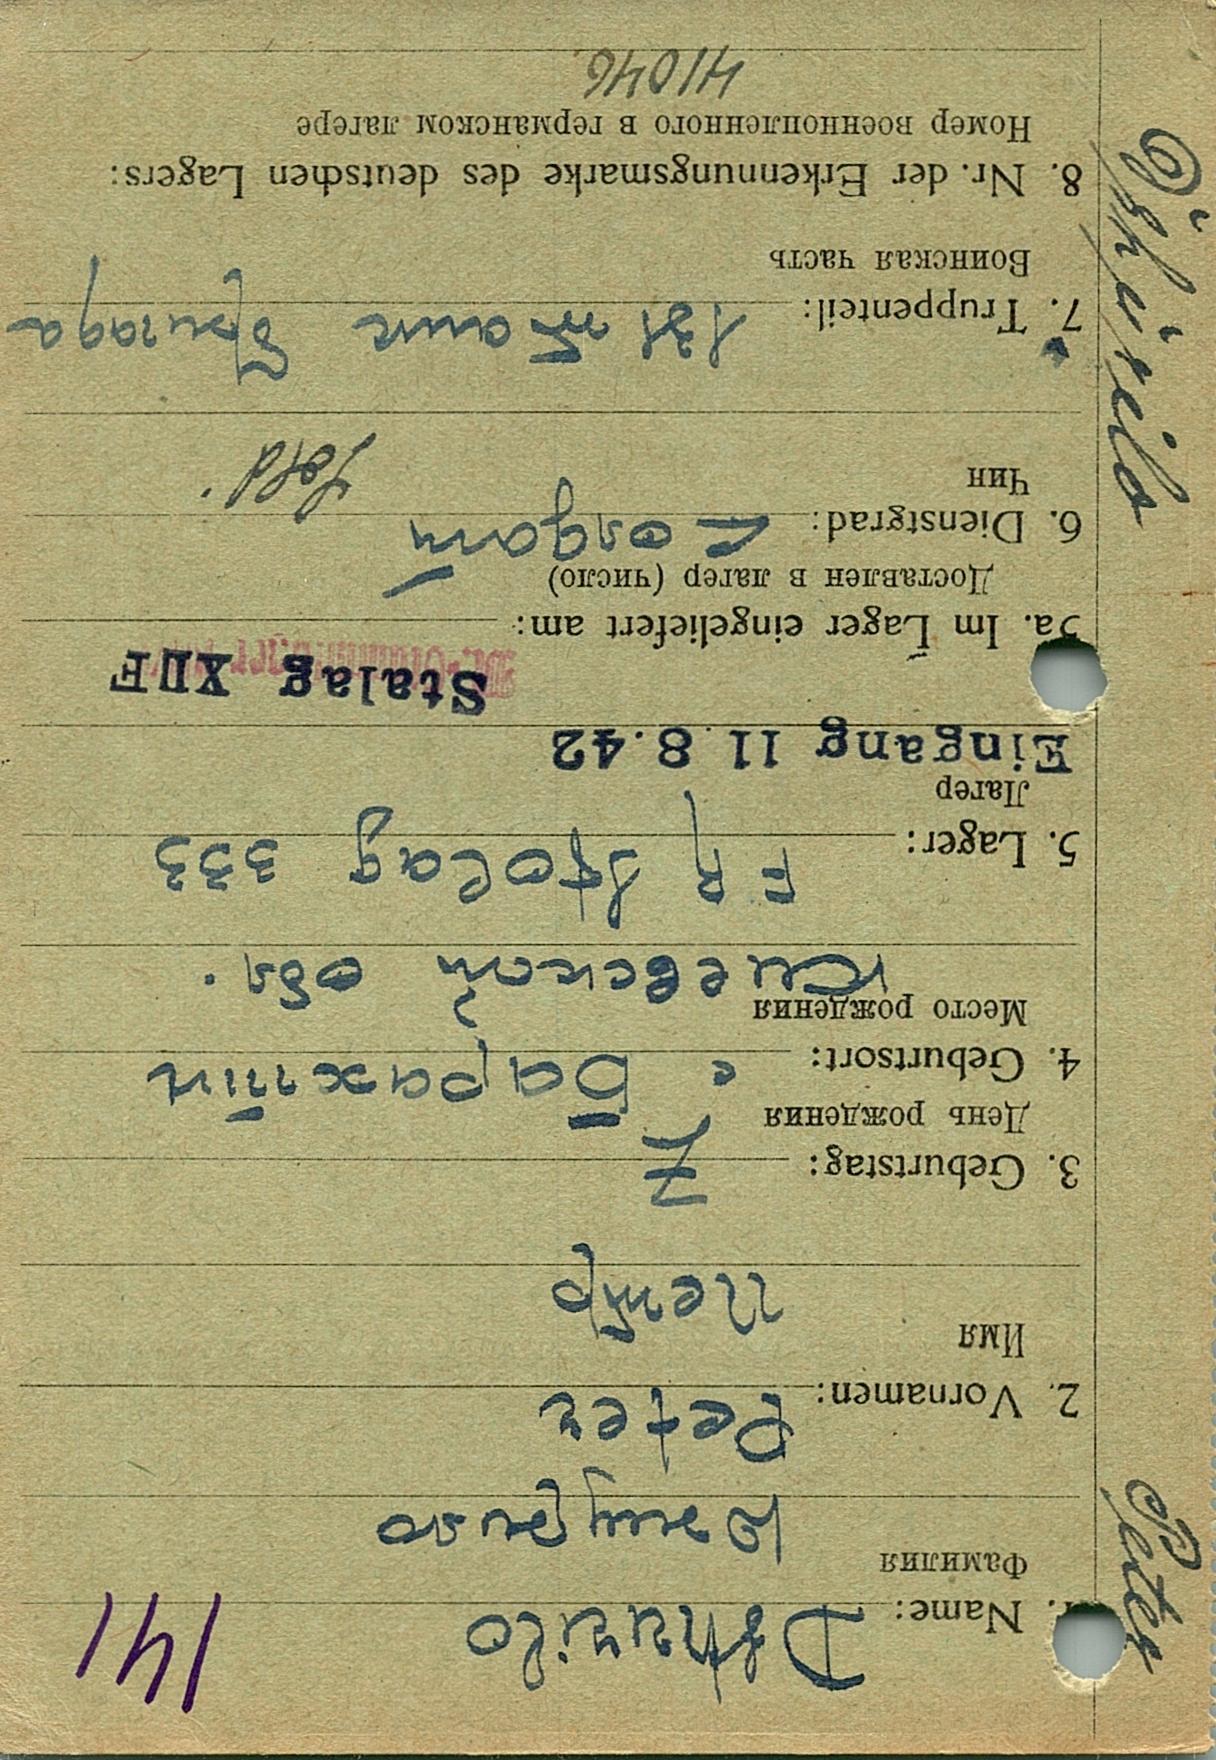 141
Peter
1. Name: Dshurilo
Фамилия
Джурило
2. Vornamen: Peter
Имя
Петр
3. Geburtstag:
День рождения
4. Geburtsort: с
Место рождения
Киевской обл.
5. Lager: Stalag 333
Лагер
Eingang 11.8.42
Stalag XII F
5a. Im Lager eingeliefert am:
Доставлен в лагер (число)
6. Dienstgrad: Солдат
Чин
Sold.
7. Truppenteil: 131 Танк бригада
Воинская часть
8. Nr. der Erkennungsmarke des deutschen Lagers:
Номер военнопленного в германском лагере
41046